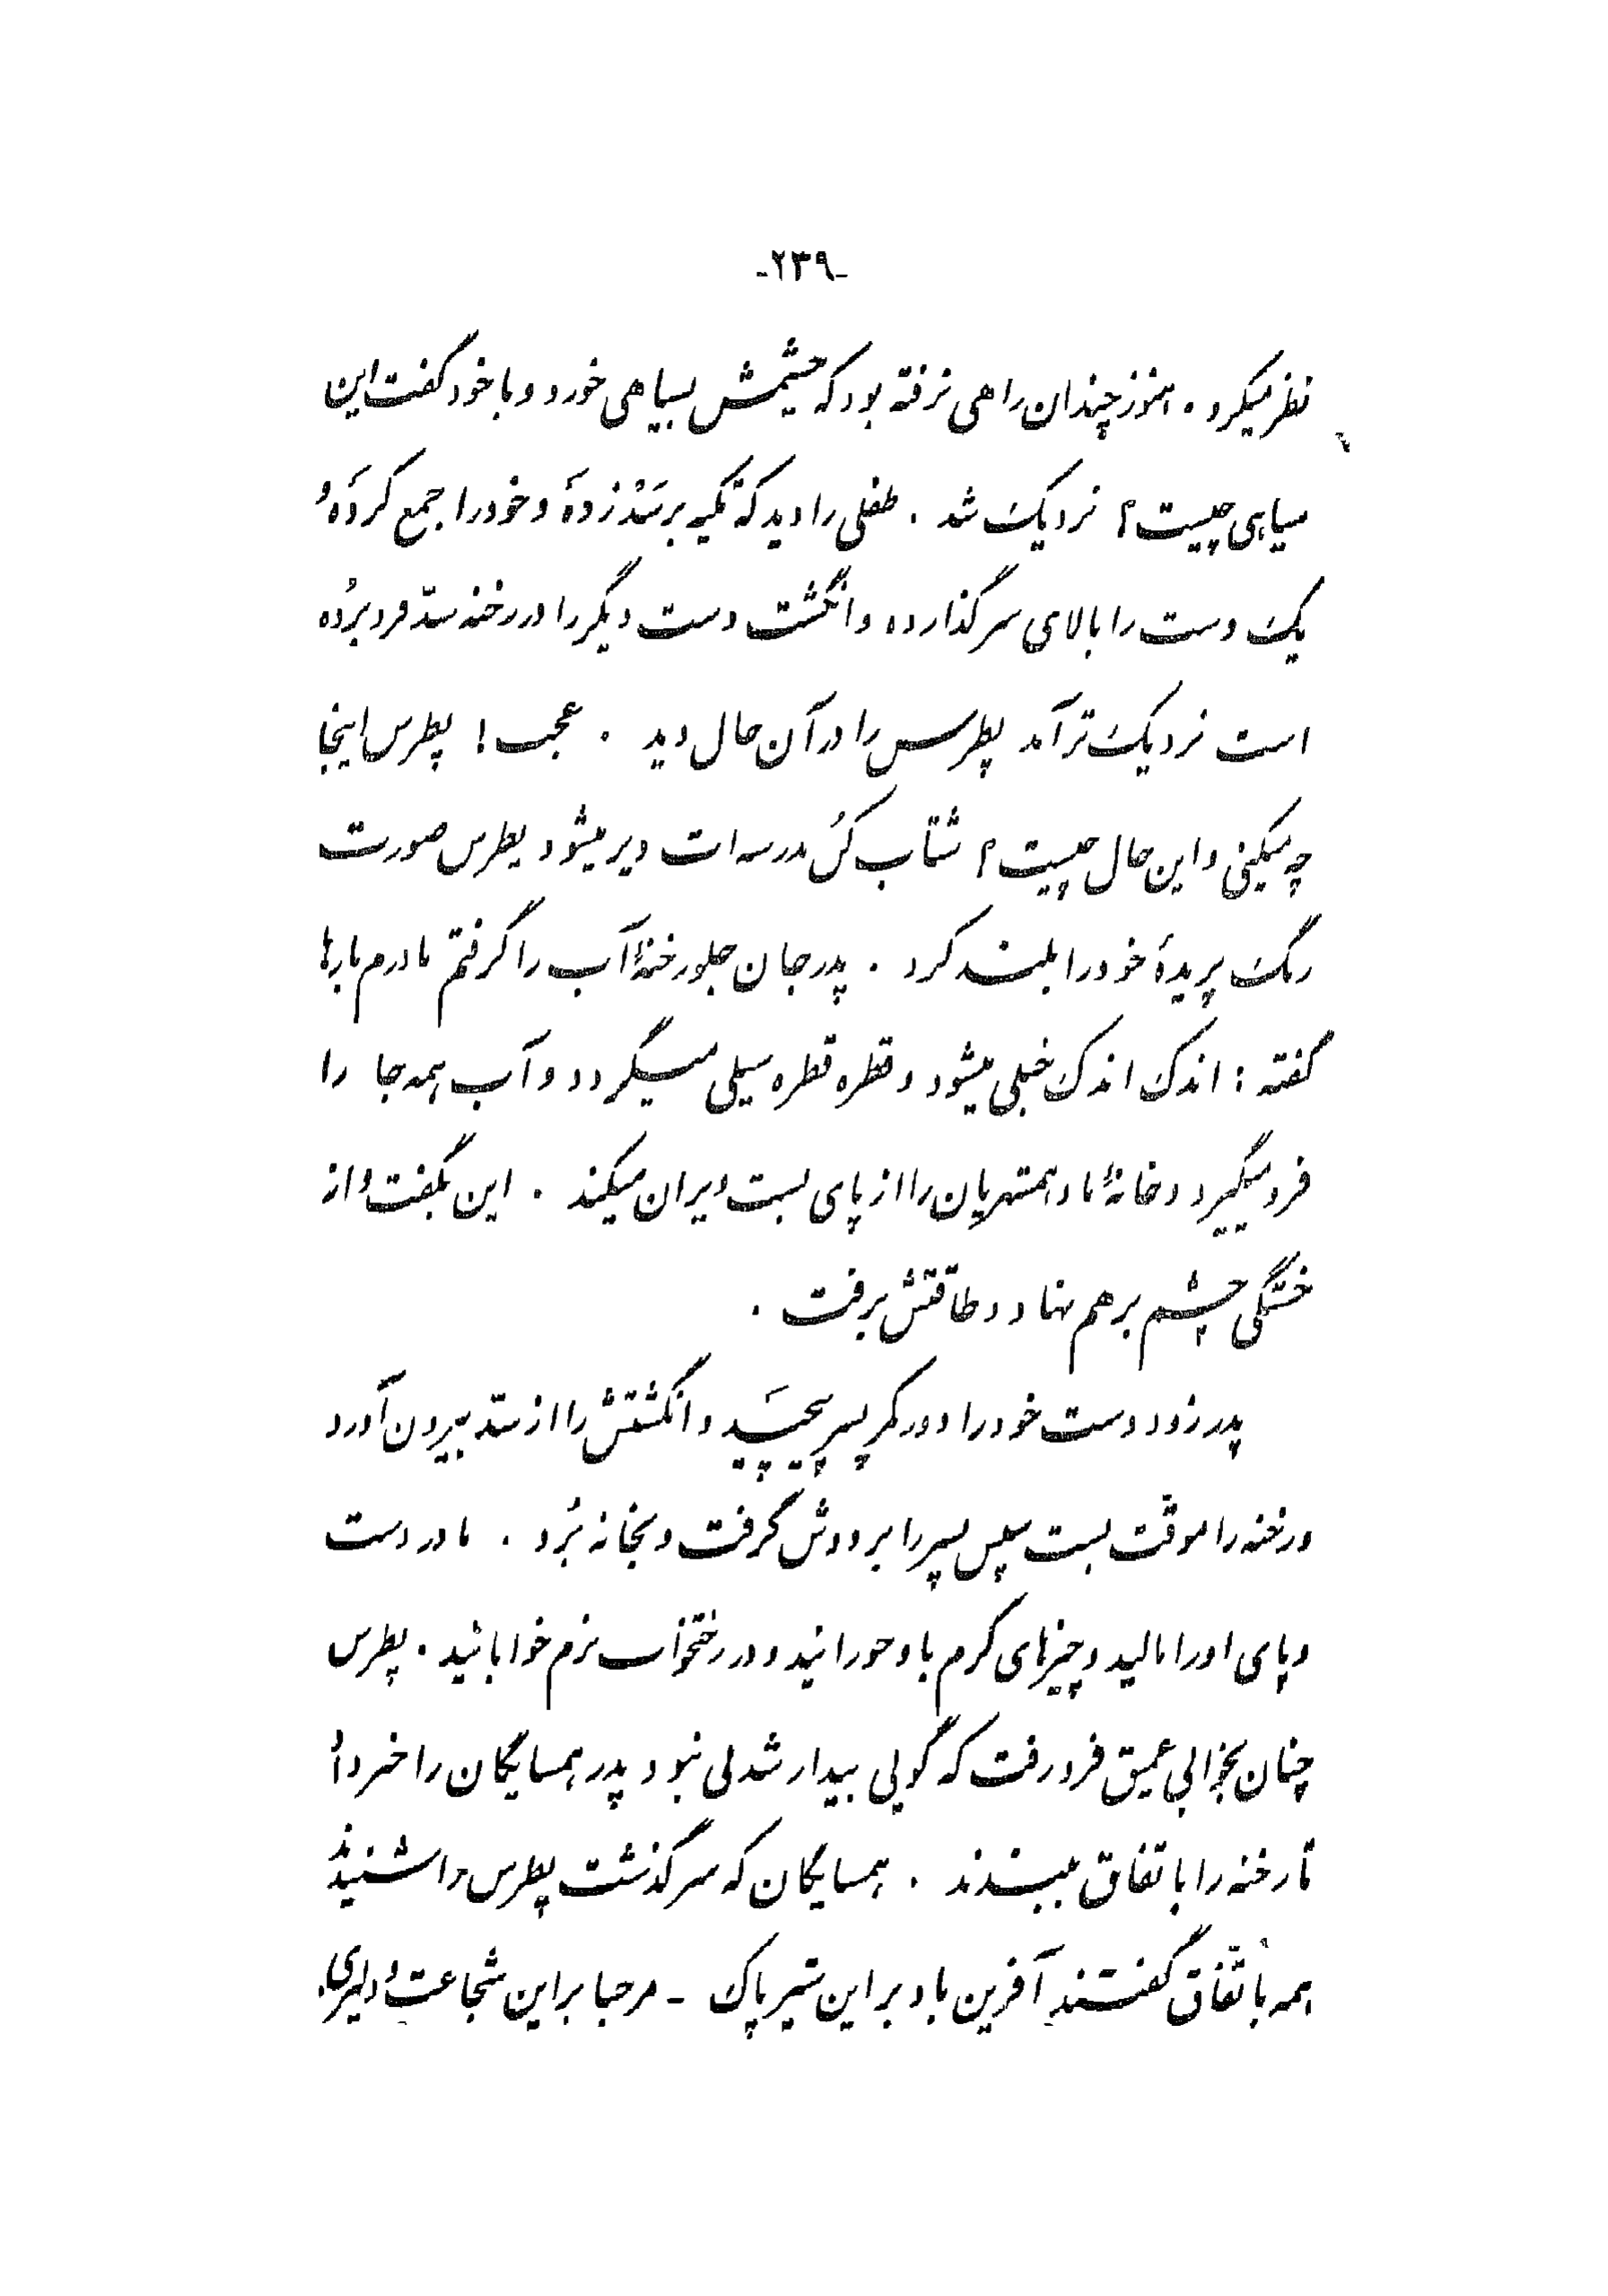 -۲۳۹-
نظر میکرد. هنوز چندان راهی نرفته بود که چشمش بسیاهی خورد و با خود گفت این
سیاهی چیست؟ نزدیک شد. طفلی را دید که تکیه بر سد زده و خود را جمع کرده و
یک دست را بالای سر گذارده و انگشت دست دیگر را در رخنه سدّ فرو برده
است نزدیک تر آمد پطرس را در آن حال دید. عجب! پطرس اینجا
چه میکنی و این حال چیست؟ شتاب کُن مدرسه ات دیر میشود پطرس صورت
رنگ پریدهٔ خود را بلند کرد. پدر جان جلو رخنهٔ آب را گرفتم مادرم بارها
گفته: اندک اندک خیلی میشود و قطره قطره سیلی میگردد و آب همه جا را
فرو میگیرد و خانهٔ ما و همشهریان را از پای بست ویران میکند. این بگفت و از
خستگی چشم بر هم نهاد و طاقتش برفت.
پدر زود دست خود را دور کمر پسر پیچید و انگشتش را از سدّ بیرون آورد
و رخنه را موقّت بست سپس پسر را بر دوش گرفت و بخانه بُرد. مادر دست
و پای او را مالید و چیزهای گرم باو خورانید و در رختخواب نرم خوابانید. پطرس
چنان بخوابی عمیق فرو رفت که گویی بیدار شدنی نبود پدر همسایگان را خبر داد
تا رخنه را باتفاق ببندند. همسایگان که سرگذشت پطرس را شنیدند
همه باتّفاق گفتند آفرین باد بر این شیر پاک - مرحبا بر این شجاعت و دلیری.